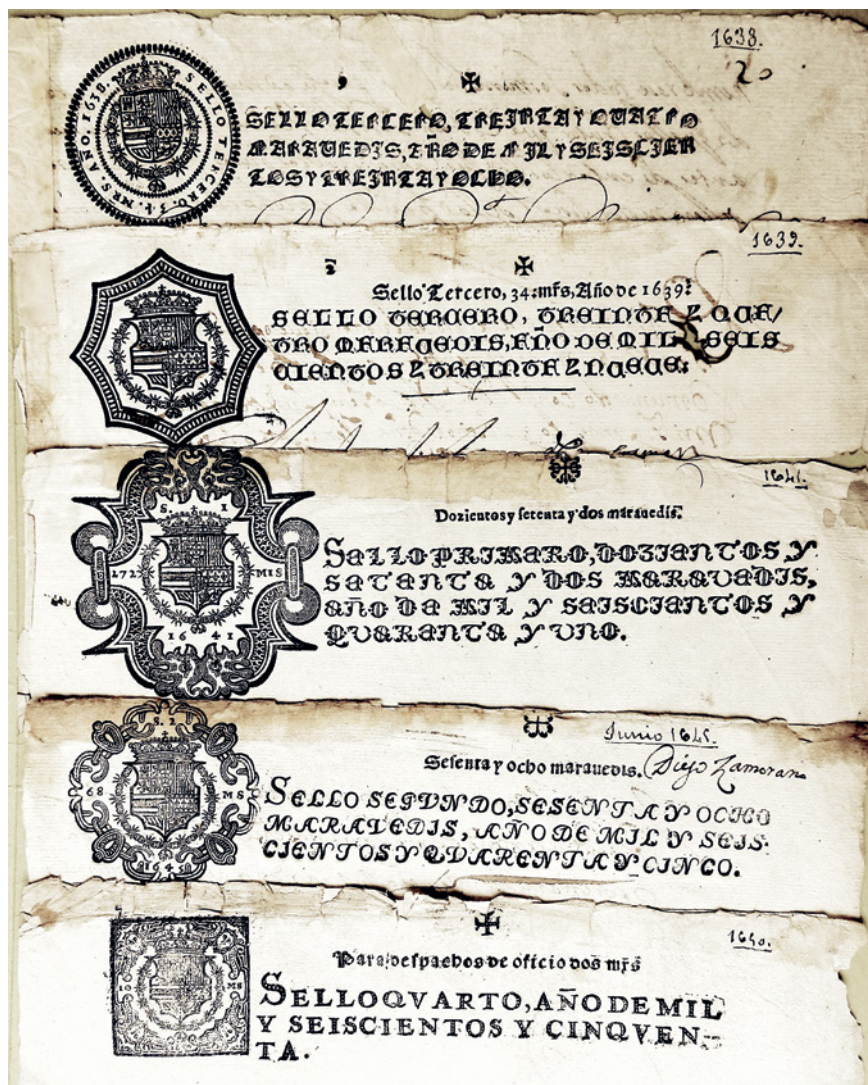 1638.
20
SELLO TERCERO. 34. MRS. AÑO. 1638.
SELLO TERCERO, TREINTA Y QUATRO
MARAVEDIS, AÑO DE MIL Y SEISCIEN
TOS Y TREINTA Y OCHO.
1639.
2
Sello Tercero, 34. mrs, Año de 1639.
SELLO TERCERO, TREINTA Y QUA/
TRO MARAVEDIS, AÑO DE MIL Y SEIS
CIENTOS Y TREINTA Y NUEVE.
1641.
Dozientos y setenta y dos maravedis.
S. I
272 MIS
1641
SELLO PRIMERO, DOZIENTOS Y
SETENTA Y DOS MARAVEDIS,
AÑO DE MIL Y SEISCIENTOS Y
QUARENTA Y UNO.
Junio 1645.
Sesenta y ocho maravedis. Diego Zamorano
S. 2
68 MS
1645
SELLO SEGVNDO, SESENTA Y OCHO
MARAVEDIS, AÑO DE MIL Y SEIS-
CIENTOS Y QVARENTA Y CINCO.
1650.
Para despachos de oficio dos mrs
SELLO QVARTO, AÑO DE MIL
Y SEISCIENTOS Y CINQVEN-
TA.